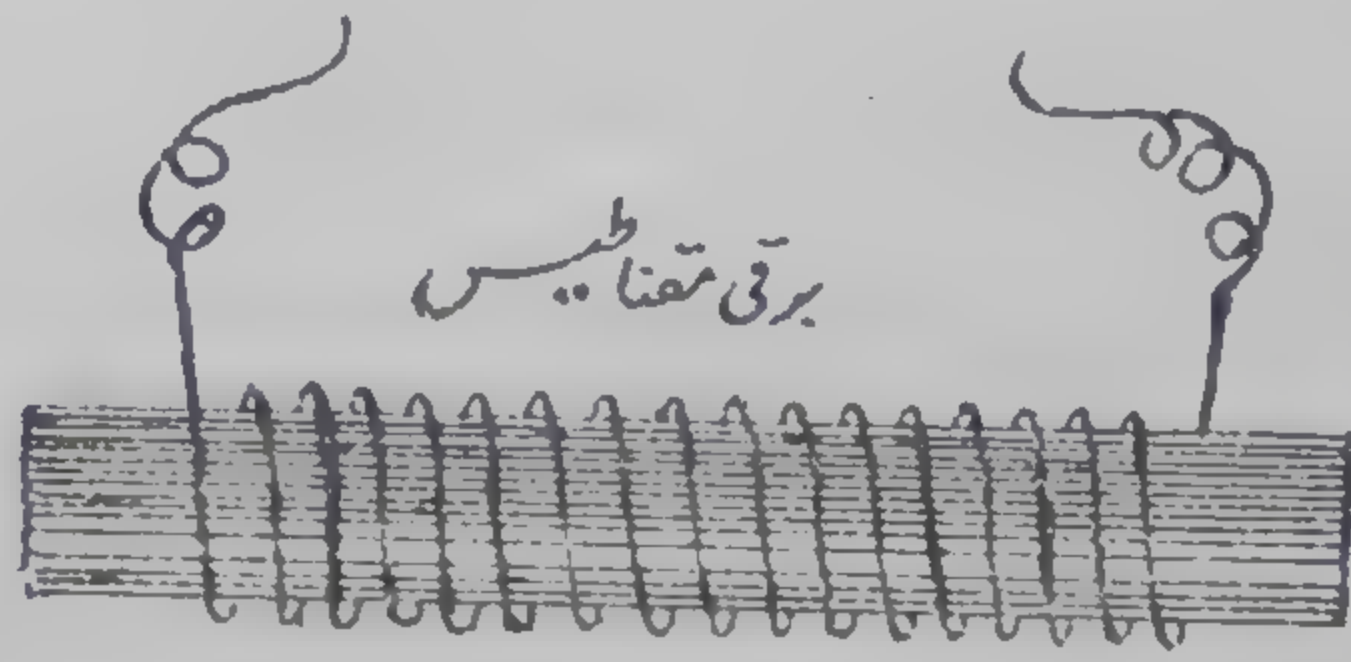 برقی مقناطیس